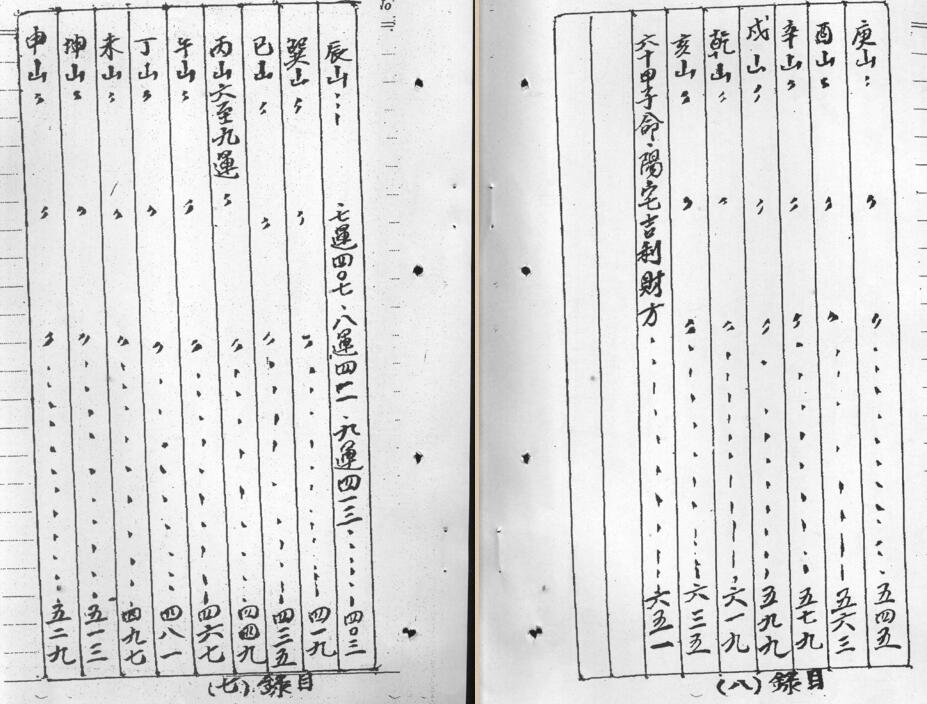 辰山：：七運四〇七、八運四一一、九運四一三……四〇三
巽山〃　〃　〃……四一九
巳山〃　〃　〃……四三五
丙山六至九運〃　〃……四四九
午山〃　〃　〃……四六七
丁山〃　〃　〃……四八一
未山〃　〃　〃……四九七
坤山〃　〃　〃……五一三
申山〃　〃　〃……五二九
目錄(七)
庚山〃　〃　〃……五四五
酉山〃　〃　〃……五六三
辛山〃　〃　〃……五七九
戌山〃　〃　〃……五九九
乾山〃　〃　〃……六一九
亥山〃　〃　〃……六三五
六十甲子命、陽宅吉利財方……六五一
目錄(八)